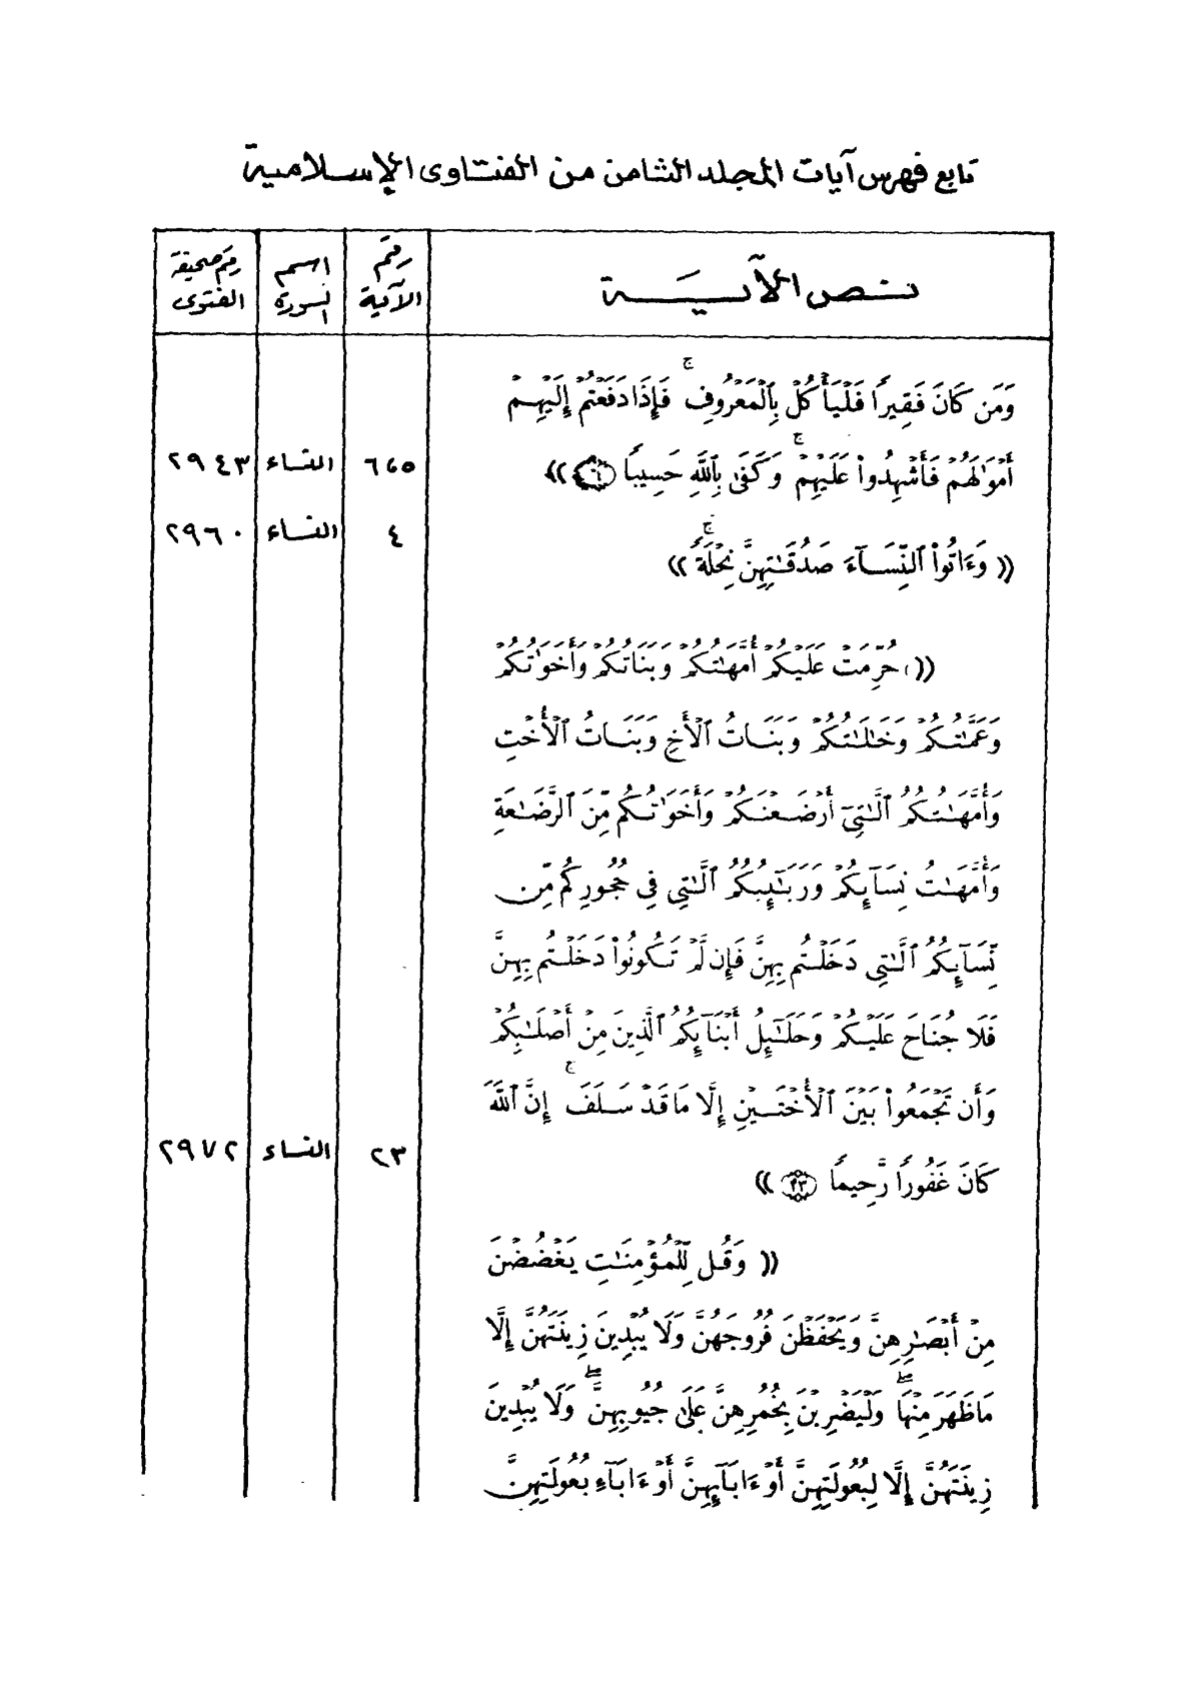 تابع فهرس آيات المجلد الثامن من الفتاوى الإسلامية
نص الآية
رقم الآية
اسم السورة
رقم صحيفة الفتوى
وَمَن كَانَ فَقِيرًا فَلْيَأْكُلْ بِٱلْمَعْرُوفِ ۚ فَإِذَا دَفَعْتُمْ إِلَيْهِمْ
أَمْوَٰلَهُمْ فَأَشْهِدُوا۟ عَلَيْهِمْ ۚ وَكَفَىٰ بِٱللَّهِ حَسِيبًا ٦ )) ٦،٥ النساء ٢٩٤٣
(( وَءَاتُوا۟ ٱلنِّسَآءَ صَدُقَـٰتِهِنَّ نِحْلَةً ۚ )) ٤ النساء ٢٩٦٠
(( حُرِّمَتْ عَلَيْكُمْ أُمَّهَـٰتُكُمْ وَبَنَاتُكُمْ وَأَخَوَٰتُكُمْ
وَعَمَّـٰتُكُمْ وَخَـٰلَـٰتُكُمْ وَبَنَاتُ ٱلْأَخِ وَبَنَاتُ ٱلْأُخْتِ
وَأُمَّهَـٰتُكُمُ ٱلَّـٰتِىٓ أَرْضَعْنَكُمْ وَأَخَوَٰتُكُم مِّنَ ٱلرَّضَـٰعَةِ
وَأُمَّهَـٰتُ نِسَآئِكُمْ وَرَبَـٰٓئِبُكُمُ ٱلَّـٰتِى فِى حُجُورِكُم مِّن
نِّسَآئِكُمُ ٱلَّـٰتِى دَخَلْتُم بِهِنَّ فَإِن لَّمْ تَكُونُوا۟ دَخَلْتُم بِهِنَّ
فَلَا جُنَاحَ عَلَيْكُمْ وَحَلَـٰٓئِلُ أَبْنَآئِكُمُ ٱلَّذِينَ مِنْ أَصْلَـٰبِكُمْ
وَأَن تَجْمَعُوا۟ بَيْنَ ٱلْأُخْتَيْنِ إِلَّا مَا قَدْ سَلَفَ ۚ إِنَّ ٱللَّهَ
كَانَ غَفُورًا رَّحِيمًا ٢٣ )) ٢٣ النساء ٢٩٧٢
(( وَقُل لِّلْمُؤْمِنَـٰتِ يَغْضُضْنَ
مِنْ أَبْصَـٰرِهِنَّ وَيَحْفَظْنَ فُرُوجَهُنَّ وَلَا يُبْدِينَ زِينَتَهُنَّ إِلَّا
مَا ظَهَرَ مِنْهَا ۖ وَلْيَضْرِبْنَ بِخُمُرِهِنَّ عَلَىٰ جُيُوبِهِنَّ ۖ وَلَا يُبْدِينَ
زِينَتَهُنَّ إِلَّا لِبُعُولَتِهِنَّ أَوْ ءَابَآئِهِنَّ أَوْ ءَابَآءِ بُعُولَتِهِنَّ